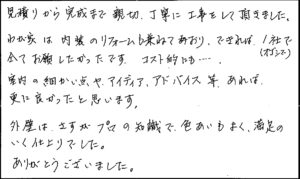 見積りから完成まで親切、丁寧に工事をして頂きました。
わが家は内装のリフォームも兼ねており、できれば、1社で
全てお願したかったです。コスト的にも…。
(オゴシで)
室内の細かい点や、アイディア、アドバイス等、あれば、
更に良かったと思います。
外壁は、さすがプロの知識で、色あいもよく、満足の
いく仕上りでした。
ありがとうございました。